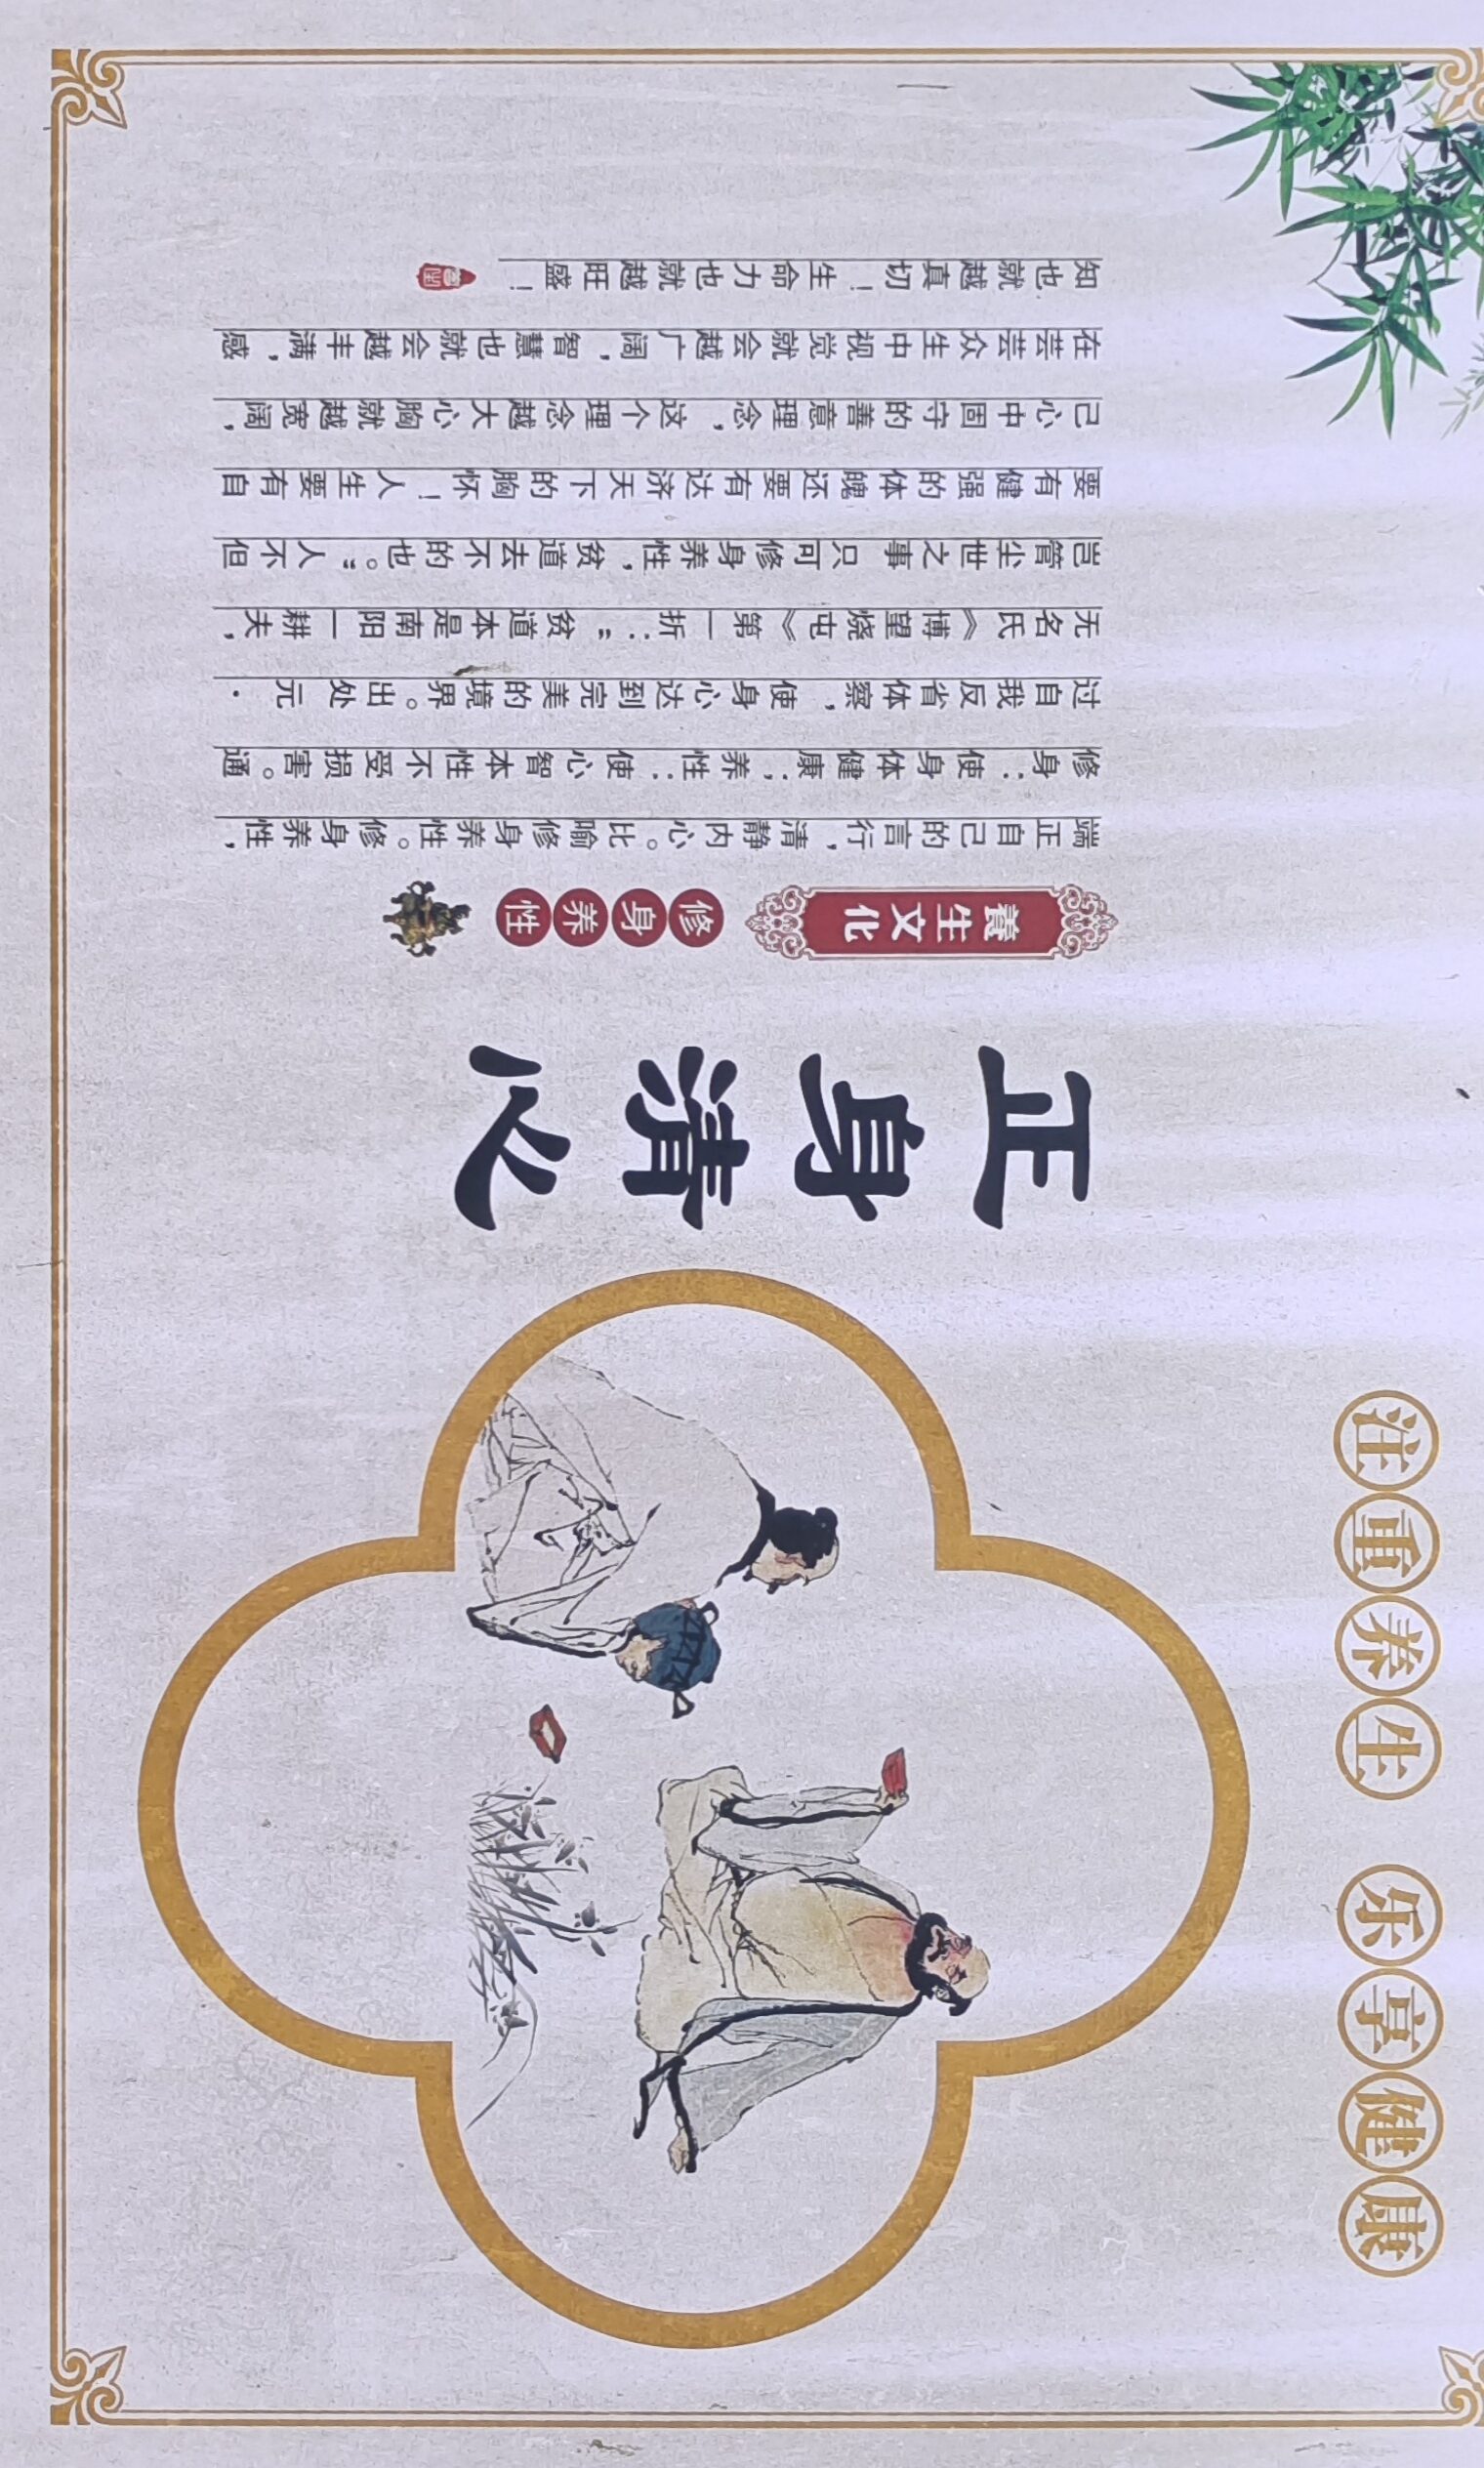 注重养生 乐享健康
正身清心
養生文化
修身养性
端正自己的言行，清静内心。比喻修身养性。修身养性，
修身：使身体健康；养性：使心智本性不受损害。通
过自我反省体察，使身心达到完美的境界。出处 元·
无名氏《博望烧屯》第一折：“贫道本是南阳一耕夫，
岂管尘世之事 只可修身养性，贫道去不的也。”人不但
要有健强的体魄还要有达济天下的胸怀！人生要有自
己心中固守的善意理念，这个理念越大心胸就越宽阔，
在芸芸众生中视觉就会越广阔，智慧也就会越丰满，感
知也就越真切！生命力也就越旺盛！